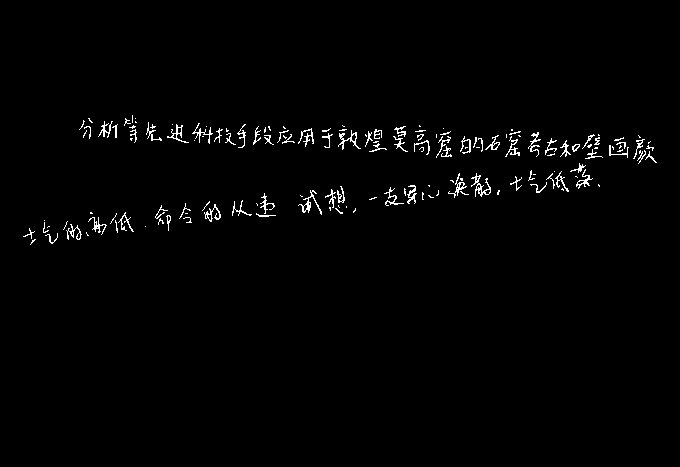 分析等先进科技手段应用于敦煌莫高窟的石窟考古和壁画颜
士气的高低.命令的从违 试想,一支军心涣散,士气低落.